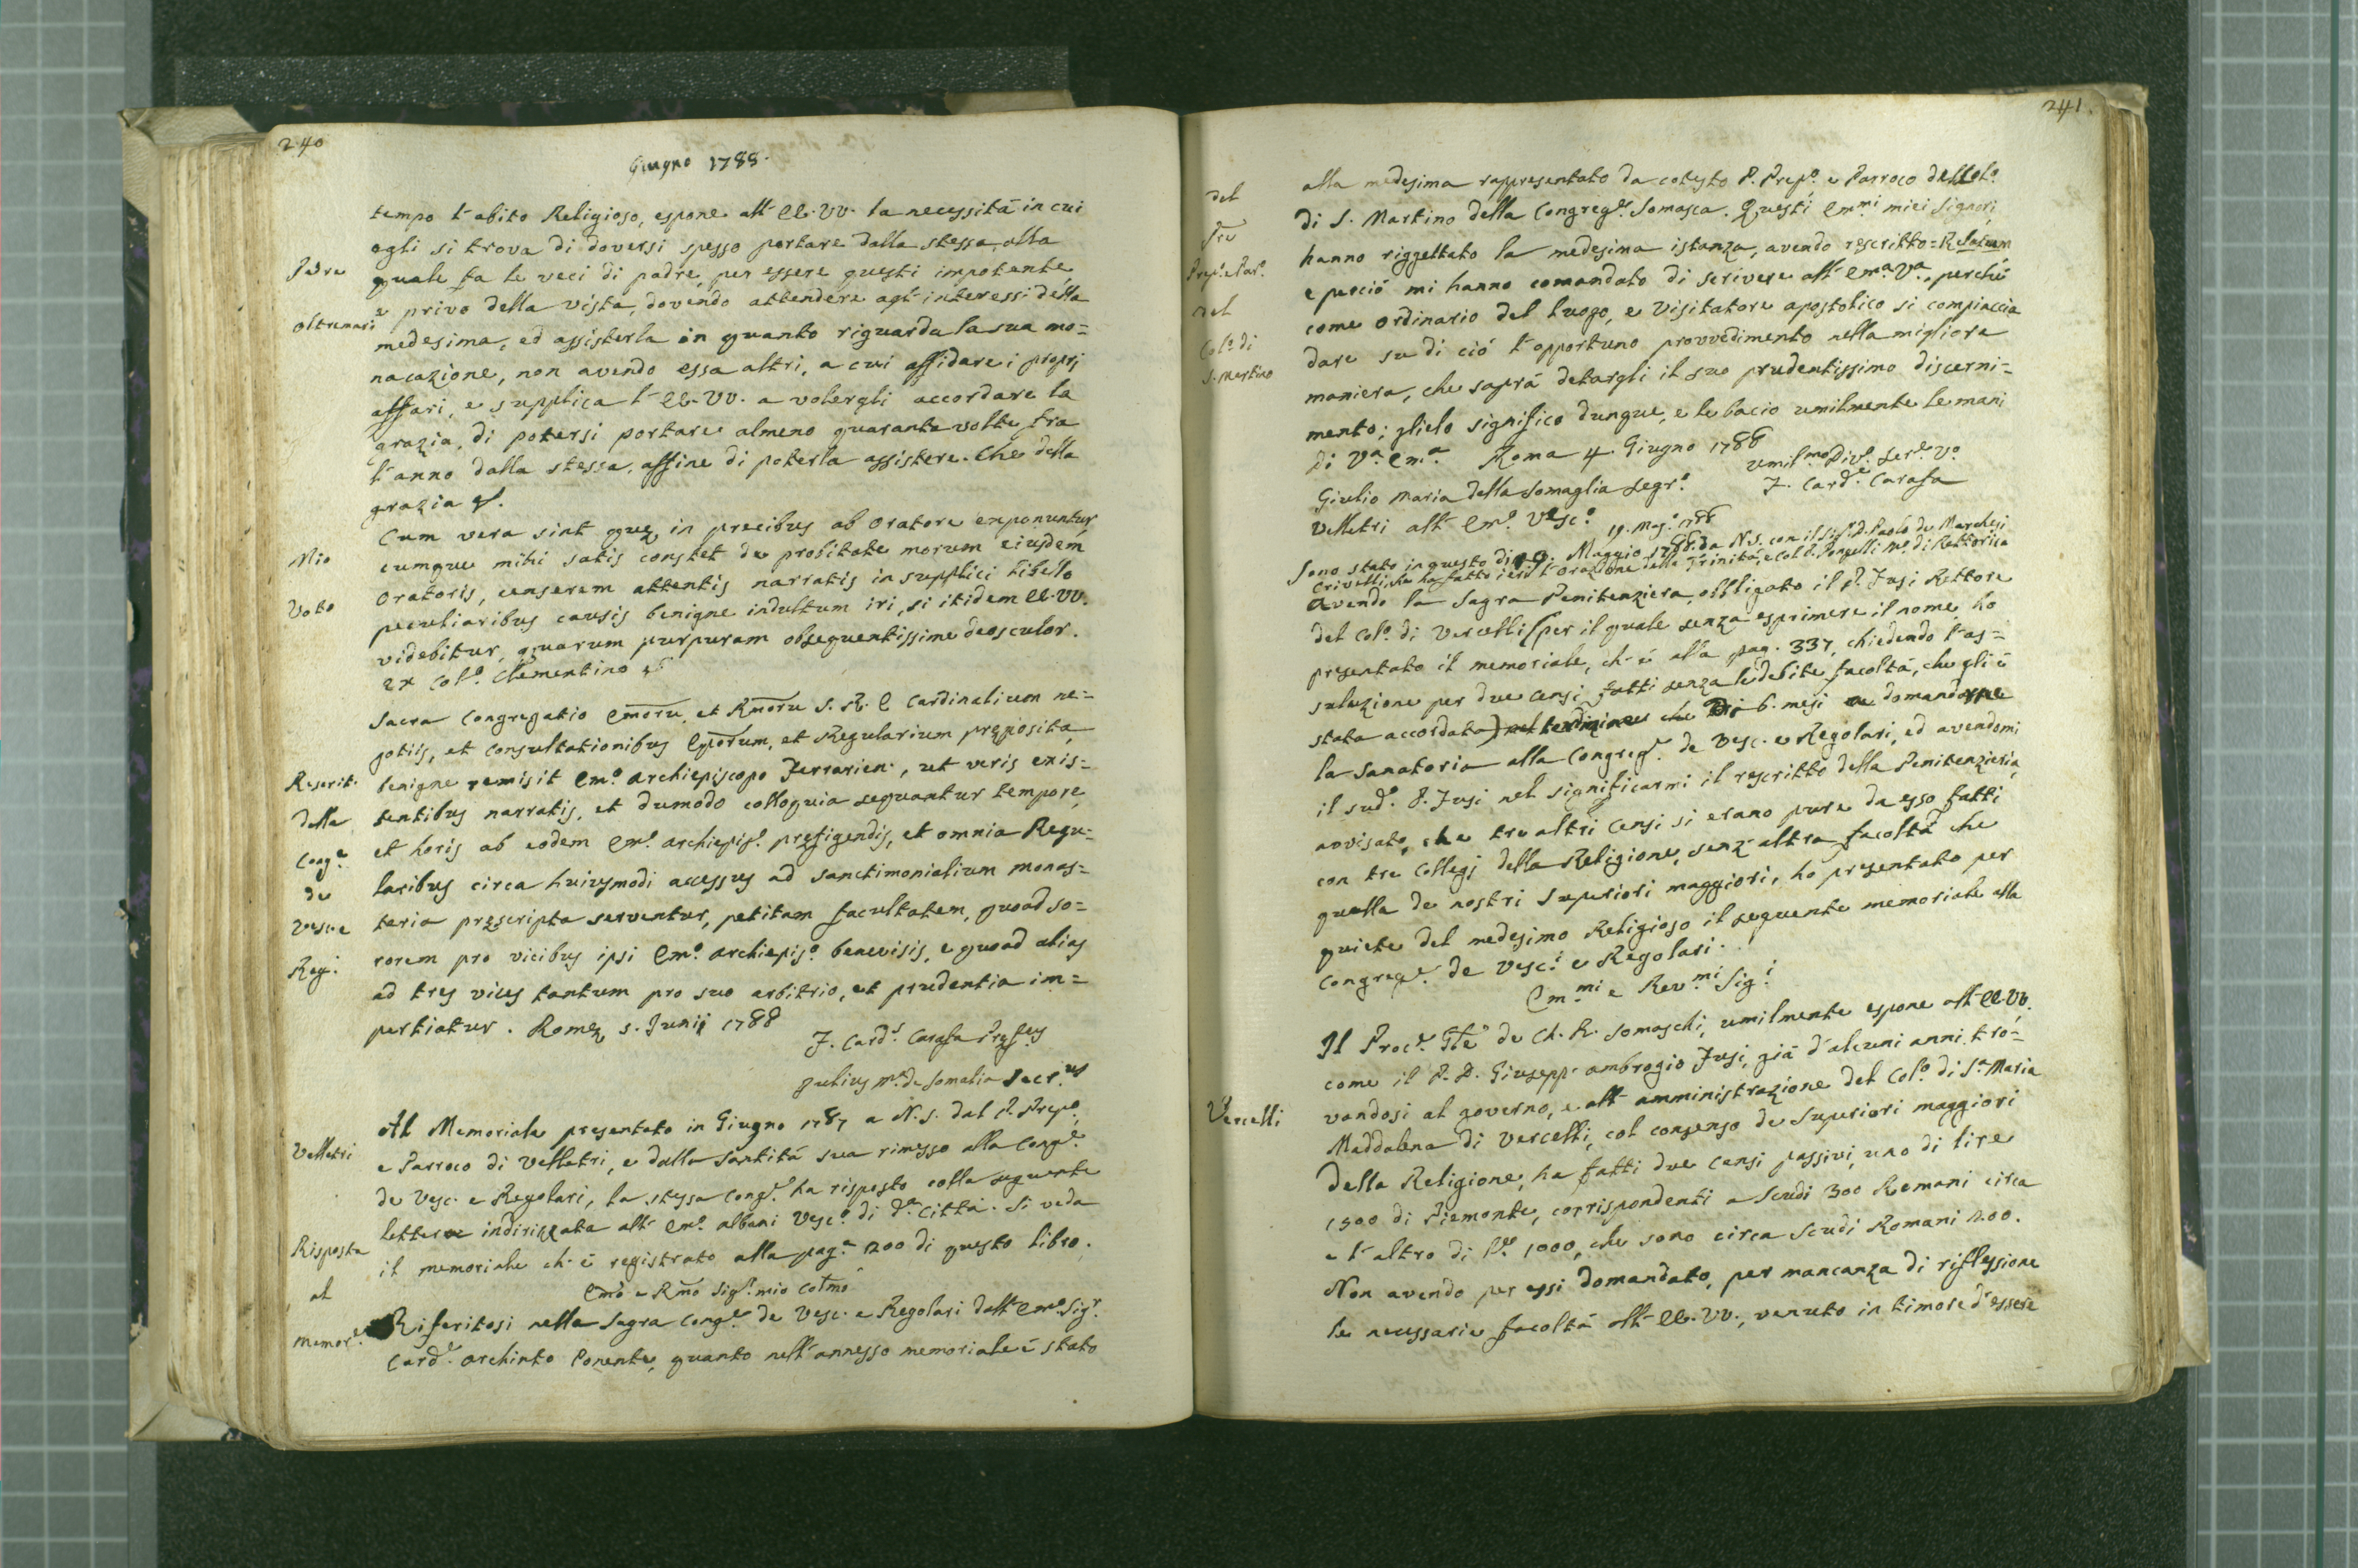 240
Giugno 1788.
tempo l'abito Religioso, espone all' EE. VV. la necessità in cui
egli si trova di doversi spesso portare dalla stessa, alla
Padre
quale fa le veci di padre, per essere questi impotente
e privo della vista, dovendo attendere agl' interessi della
Oltremari
medesima, ed assisterla in quanto riguarda la sua mo=
nacazione, non avendo essa altri, a cui affidare i proprj
affari, e supplica l' EE. VV. a volergli accordare la
grazia, di potersi portare almeno quaranta volte fra
l'anno dalla stessa, affine di poterla assistere. Che della
grazia &.
Mio
Cum vera sint quę in precibus ab Oratore exponuntur
cumque mihi satis constet de probitate morum eiusdem
Voto
Oratoris, censerem attentis narratis in supplici libello
peculiaribus causis benigne indultum iri, si itidem EE. VV.
videbitur, quarum purpuram obsequentissime deosculor.
Ex Col.º Clementino &.
Sacra Congregatio Emoru, et Rmoru S. R. E Cardinalium ne=
gotiis, et Consultationibus Eporum, et Regularium pręposita
Rescrit.
benigne remisit Em.º Archiepiscopo Ferrarien., ut veris exis=
della
tentibus narratis, et dummodo colloquia sequantur tempore,
Cong.e
et horis ab eodem Em.º Archiepis.º pręfigendis, et omnia Regu=
de
laribus circa huiusmodi accessus ad Sanctimonialium monas=
Vesc. e
teria pręscripta serventur, petitam facultatem, quoad so=
Reg.i
rorem pro vicibus ipsi Em.º Archiepis.º benevisis, e quoad alias
ad tres vices tantum pro suo arbitrio, et prudentia im=
pertiatur. Romę 5. Junii 1788
F. Card.s Carafa Pręf.us
Julius M.a de Somalia Secr.us
Al Memoriale presentato in Giugno 1787 a N. S. dal P. Prep.º,
Velletri
e Parroco di Velletri, e dalla Santità sua rimesso alla Cong.e
de Vesc. e Regolari, la stessa Cong.e ha risposto colla seguente
lettera indirizzata all' Em.º Albani Vesc.º di d.a Città. Si veda
Risposta
il memoriale ch'è registrato alla pag.a 200 di questo libro.
al
Emo e Rmo Sig.r mio Colmo
Memor.e
Riferitosi nella Sagra Cong.e de Vesc. e Regolari dall' Em.º Sig.r
Card.e Archinto Ponente, quanto nell'annesso memoriale è stato
241.
del
alla medesima rappresentato da cotesto P. Prep.º e Parroco del Col.º
Pre
di S. Martino della Congreg.e Somasca. Questi Em.mi miei Signori,
Prep.e Par.º
hanno riggettato la medesima istanza, avendo rescritto = Relatum
del
e perciò mi hanno comandato di scrivere all' Em.a V.a, perchè
come Ordinario del luogo, e Visitatore apostolico si compiaccia
Col.º di
dare su di ciò l'opportuno provvedimento nella migliore
S. Martino
maniera, che saprà detargli il suo prudentissimo discerni=
mento; glielo significo dunque, e le bacio umilmente le mani
Di V.a Em.a Roma 4 Giugno 1788
umil.mo Div.º Ser.e V.º
Giulio Maria della Somaglia Segr.º F. Card.e Carafa
Velletri all' Em.º Vesc.º 19. Mag.º 1788
Sono stato in questo dì 19. Maggio 1788. da N. S. con il Sig.r D. Paolo de Marchesi
Crivelli, che ha fatto ieri l'orazione della Trinità, e col P. Ponzelli M.º di Rettorica
Avendo la Sagra Penitenziera, obbligato il P. Fusi Rettore
del Col.º di Vercelli (per il quale senza esprimere il nome, ho
presentato il memoriale, ch'è alla pag. 337, chiedendo l'as=
soluzione per due Censi fatti senza le debite facoltà, che gli è
stata accordata) nel termine di 6. mesi a domandarne
la Sanatoria alla Congreg.e de Vesc. e Regolari, ed avendomi
il sud.º P. Fusi nel significarmi il rescritto della Penitenzieria,
avvisato, che tre altri Censi si erano pure da esso fatti
con tre Collegj della Religione, senz'altra facoltà che
quella de nostri Superiori maggiori, ho presentato per
quiete del medesimo Religioso il seguente memoriale alla
Congreg.e de Vesc.i e Regolari.
Em.mi e Rev.mi Sig.i
Il Proc.e Gle de Ch. R. Somaschi, umilmente espone all' EE. VV.
come il P. D. Giusepp' Ambrogio Fusi, già d'alcuni anni tro=
Vercelli
vandosi al governo, e all' amministrazione del Col.º di S.a Maria
Maddalena di Vercelli, col consenso de Superiori maggiori
della Religione, ha fatti due Censi passivi, uno di lire
1500 di Piemonte, corrispondenti a Scudi 300 Romani circa
e l'altro di L.e 1000, che sono circa scudi Romani 200.
Non avendo per essi domandato, per mancanza di riflessione
le necessarie facoltà all' EE. VV., venuto in timore d'essere